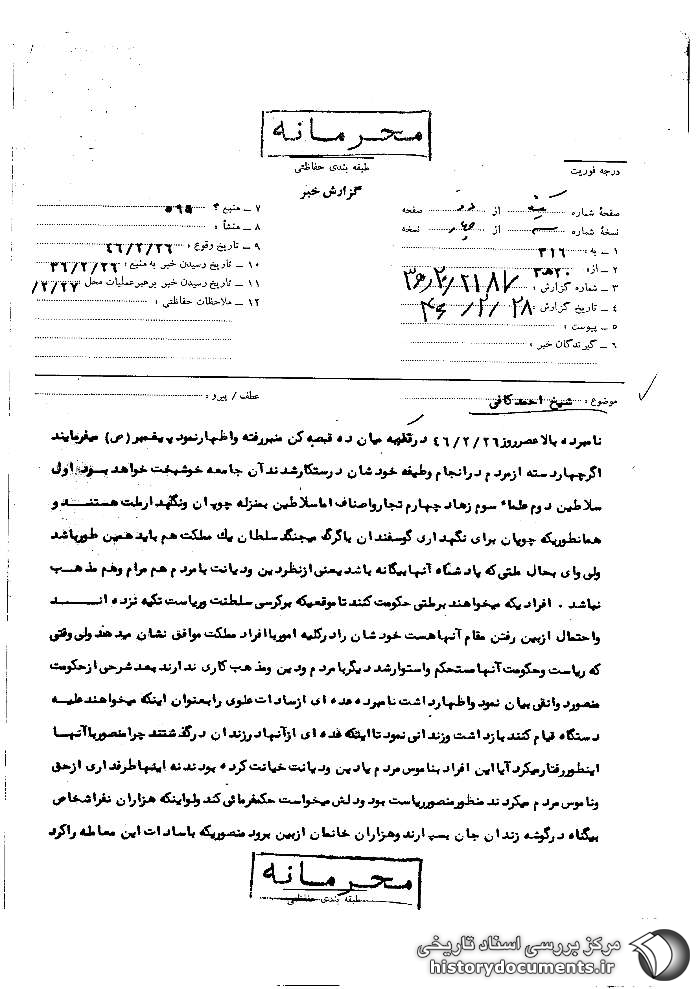 محرمانه
طبقه بندی حفاظتی
گزارش خبر
درجه فوریت
صفحهٔ شماره یک از دو صفحه
نسخهٔ شماره سه از چهار نسخه
۱ ــ به : ۳۱۶
۲ ــ از : ۲۰ ه ۳
۳ ــ شماره گزارش :
۴ ــ تاریخ گزارش : ۲۸ /۲/ ۴۶
۵ ــ پیوست :
۶ ــ گیرندگان خبر :
۷ ــ منبع :
۸ ــ منشأ :
۹ ــ تاریخ وقوع : ۴۶/۲/۲۶
۱۰ ــ تاریخ رسیدن خبر به منبع : ۳۶/۲/۲۶
۱۱ ــ تاریخ رسیدن خبر برهبر عملیات محل /۲/۲۷
۱۲ ــ ملاحظات حفاظتی :
موضوع : شیخ احمد کافی
عطف / پیرو :
نامبرده بالا عصر روز ۴۶/۲/۲۶ در میان ده قبصه کن منبر رفته و اظهار نمود پیغمبر (ص) میفرمایند
اگر چهار دسته از مردم در انجام وظیفه خودشان درستکار شدند آن جامعه خوشبخت خواهد بود . اول
سلاطین دوم علماء سوم زهاد چهارم تجار و اصناف اما سلاطین بمنزله چوپان و نگهدار ملت هستند و
همانطوریکه چوپان برای نگهداری گوسفندان با گرگ میجنگد سلطان یك مملکت هم باید همین طور باشد
ولی وای بحال ملتی که پادشاه آنها بیگانه باشد یعنی از نظر دین و دیانت با مردم هم مرام و هم مذهب
نباشد . افرادیکه میخواهند بر ملتی حکومت کنند تا موقعیکه بر کرسی سلطنت و ریاست تکیه نزده اند
و احتمال از بین رفتن مقام آنها هست خودشان را در کلیه امور با افراد مملکت موافق نشان میدهند ولی وقتی
که ریاست و حکومت آنها مستحکم و استوار شد دیگر با مردم و دین و مذهب کاری ندارند بعد شرحی از حکومت
منصور دوانقی بیان نمود و اظهار داشت نامبرده عده ای از سادات علوی را بعنوان اینکه میخواهند علیه
دستگاه قیام کنند بازداشت و زندانی نمود تا اینکه عده ای از آنها در زندان درگذشتند چرا منصور با آنها
اینطور رفتار میکرد آیا این افراد بناموس مردم یا دین و دیانت خیانت کرده بودند نه اینها طرفداری از حق
و ناموس مردم میکردند منظور منصور ریاست بود و دلش میخواست حکمفرمائی کند ولو اینکه هزاران نفر اشخاص
بیگناه در گوشه زندان جان بسپارند و هزاران خانمان از بین برود منصوریکه با سادات این معامله را کرد
محرمانه
طبقه بندی حفاظتی
مرکز بررسی اسناد تاریخی
historydocuments.ir